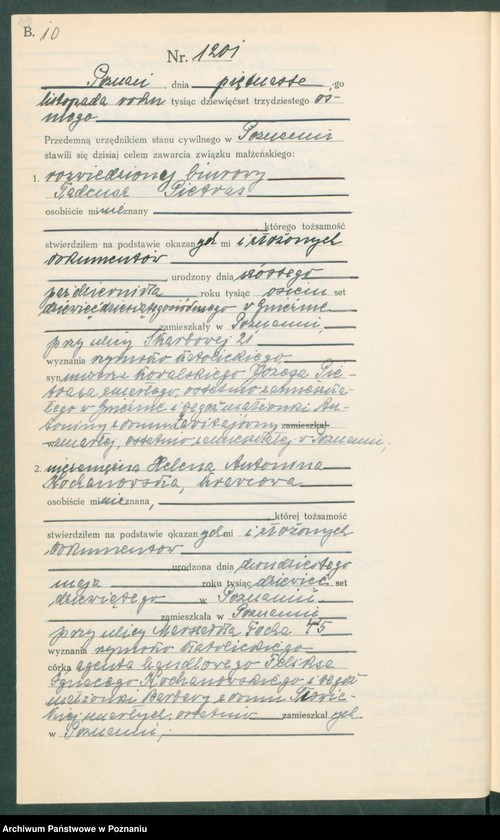 B. 10
Nr. 1201
Poznań, dnia piętnaste-go
listopada roku tysiąc dziewięćset trzydziestego ós-
mego
Przedemną urzędnikiem stanu cywilnego w Poznaniu
stawili się dzisiaj celem zawarcia związku małżeńskiego:
1. rozwiedziony, biurowy
Tadeusz Pietras
osobiście mi nieznany
, którego tożsamość
stwierdziłem na podstawie okazanych mi i złożonych
dokumentów
, urodzony dnia szóstego
października roku tysiąc osiem set
dziewięćdziesiątego siódmego w Gnieźnie
zamieszkały w Poznaniu,
przy ulicy Skarbowej 21
wyznania rzymsko katolickiego
syn Józefa Pie-
trasa zmarłego, ostatnio zamieszka-
łego w Gnieźnie i tegoż małżonki An-
toniny z domu zamieszkał
zmarłej, ostatnio zamieszkałej w Poznaniu;
2. niezamężna Helena Antonina
Kochanowska, krawcowa
osobiście mi nieznana,
, której tożsamość
stwierdziłem na podstawie okazanych mi i złożonych
dokumentów
, urodzona dnia dwudziestego
maja roku tysiąc dziewięć set
dziewiątego w Poznaniu
zamieszkała w Poznaniu,
przy ulicy Marszałka Focha 75
wyznania rzymsko katolickiego
córka agenta handlowego Feliksa
Ignacego Kochanowskiego i tegoż
małżonki Barbary z domu
zmarłych, ostatnio zamieszkałych
w Poznaniu;
Archiwum Państwowe w Poznaniu